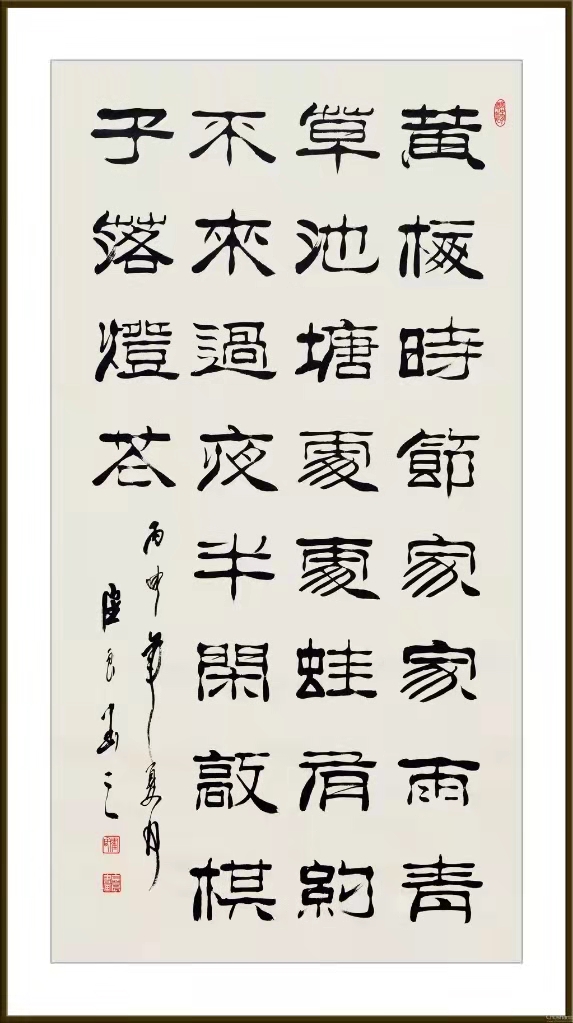 黄梅時節家家雨青
草池塘處處蛙有約
不來過夜半閑敲棋
子落燈花
丙申年夏月
書之